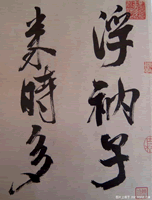 浮衲子
来時多